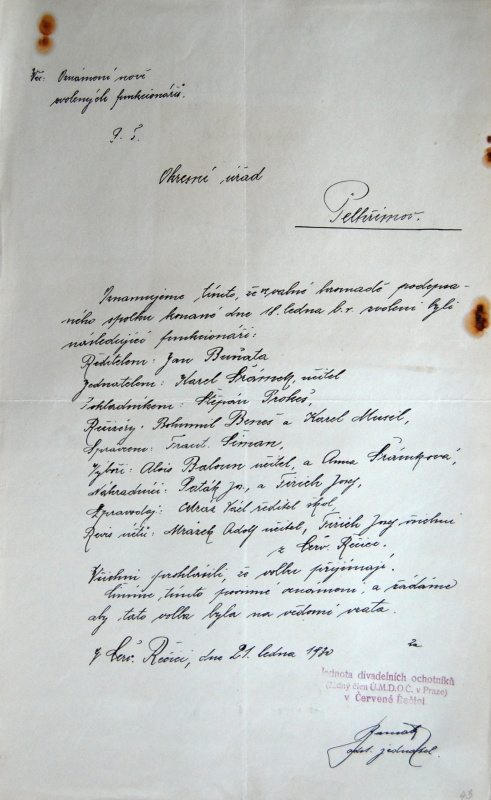 Věc: Oznámení nově
zvolených funkcionářů.
P. T.
Okresní úřad
Pelhřimov.
Oznamujeme tímto, že na valné hromadě podepsa-
ného spolku konané dne 18. ledna b. r. zvoleni byli
následující funkcionáři:
Ředitelem: Jan Buňata
Jednatelem: Karel Šrámek, učitel
Pokladníkem: Štěpán Prokeš,
Režiséry: Bohumil Beneš a Karel Musil,
Správcem: Frant. Šiman,
Výboři: Alois Baloun učitel, a Anna Šrámková,
Náhradníci: Pešák Jos., a Jiřich Josef,
Zpravodaj: Václ ředitel škol,
Revis. účtů: Mrázek Adolf učitel, Jiřich Josef všichni
z Červ. Řečice.
Všichni prohlásili, že volbu přijímají.
Činíme tímto povinné oznámení, a žádáme
aby tato volba byla na vědomí vzata.
V Červ. Řečici, dne 21. ledna 1920
Za
Jednota divadelních ochotníků
(řádný člen Ú.M.D.O.Č. v Praze)
v Červené Řečici
jednatel.
49